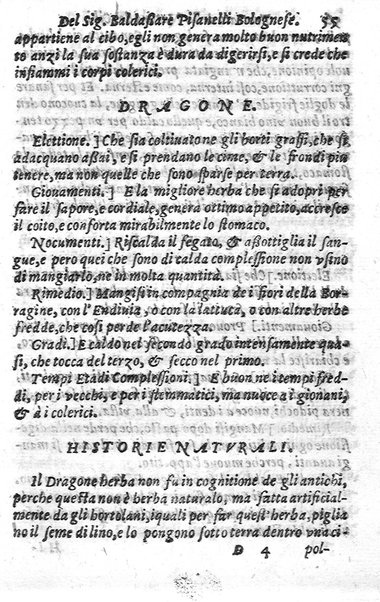 Del Sig. Baldassare Pisanelli Bolognese. 55
appartiene al cibo, egli non genera molto buon nutrimen-
to anzi la sua sostanza è dura da digerirsi, e si crede che
infiammi i corpi colerici.
DRAGONE.
Elettione.] Che sia coltivato ne gli horti grassi, che si
adacquano assai, e si prendano le cime, & le frondi piu
tenere, ma non quelle che sono sparse per terra.
Giovamenti.] E la migliore herba che si adopri per
fare il sapore, e cordiale, genera ottimo appetito, accresce
il coito, e conforta mirabilmente lo stomaco.
Nocumenti.] Riscalda il fegato, & assottiglia il san-
gue, e pero quei che sono di calda complessione non usino
di mangiarlo, ne in molta quantità.
Rimedio.] Mangisi in compagnia de i fiori della Bor-
ragine, con l'Endivia, ò con la lattuca, ò con altre herbe
fredde, che cosi perde l'acutezza.
Gradi.] E caldo nel secondo grado intensamente qua-
si, che tocca del terzo, & secco nel primo.
Tempi Età di Complessioni.] E buon ne i tempi fred-
di, per i vecchi, e per i flemmatici, ma nuoce a i giovani,
& à i colerici.
HISTORIE NATVRALI.
Il Dragone herba non fu in cognitione de gli antichi,
perche questa non è herba naturale, ma fatta artificial-
mente da gli hortolani, i quali per far quest'herba, piglia
no il seme di lino, e lo pongono sotto terra dentro una ci-
D 4 pol-